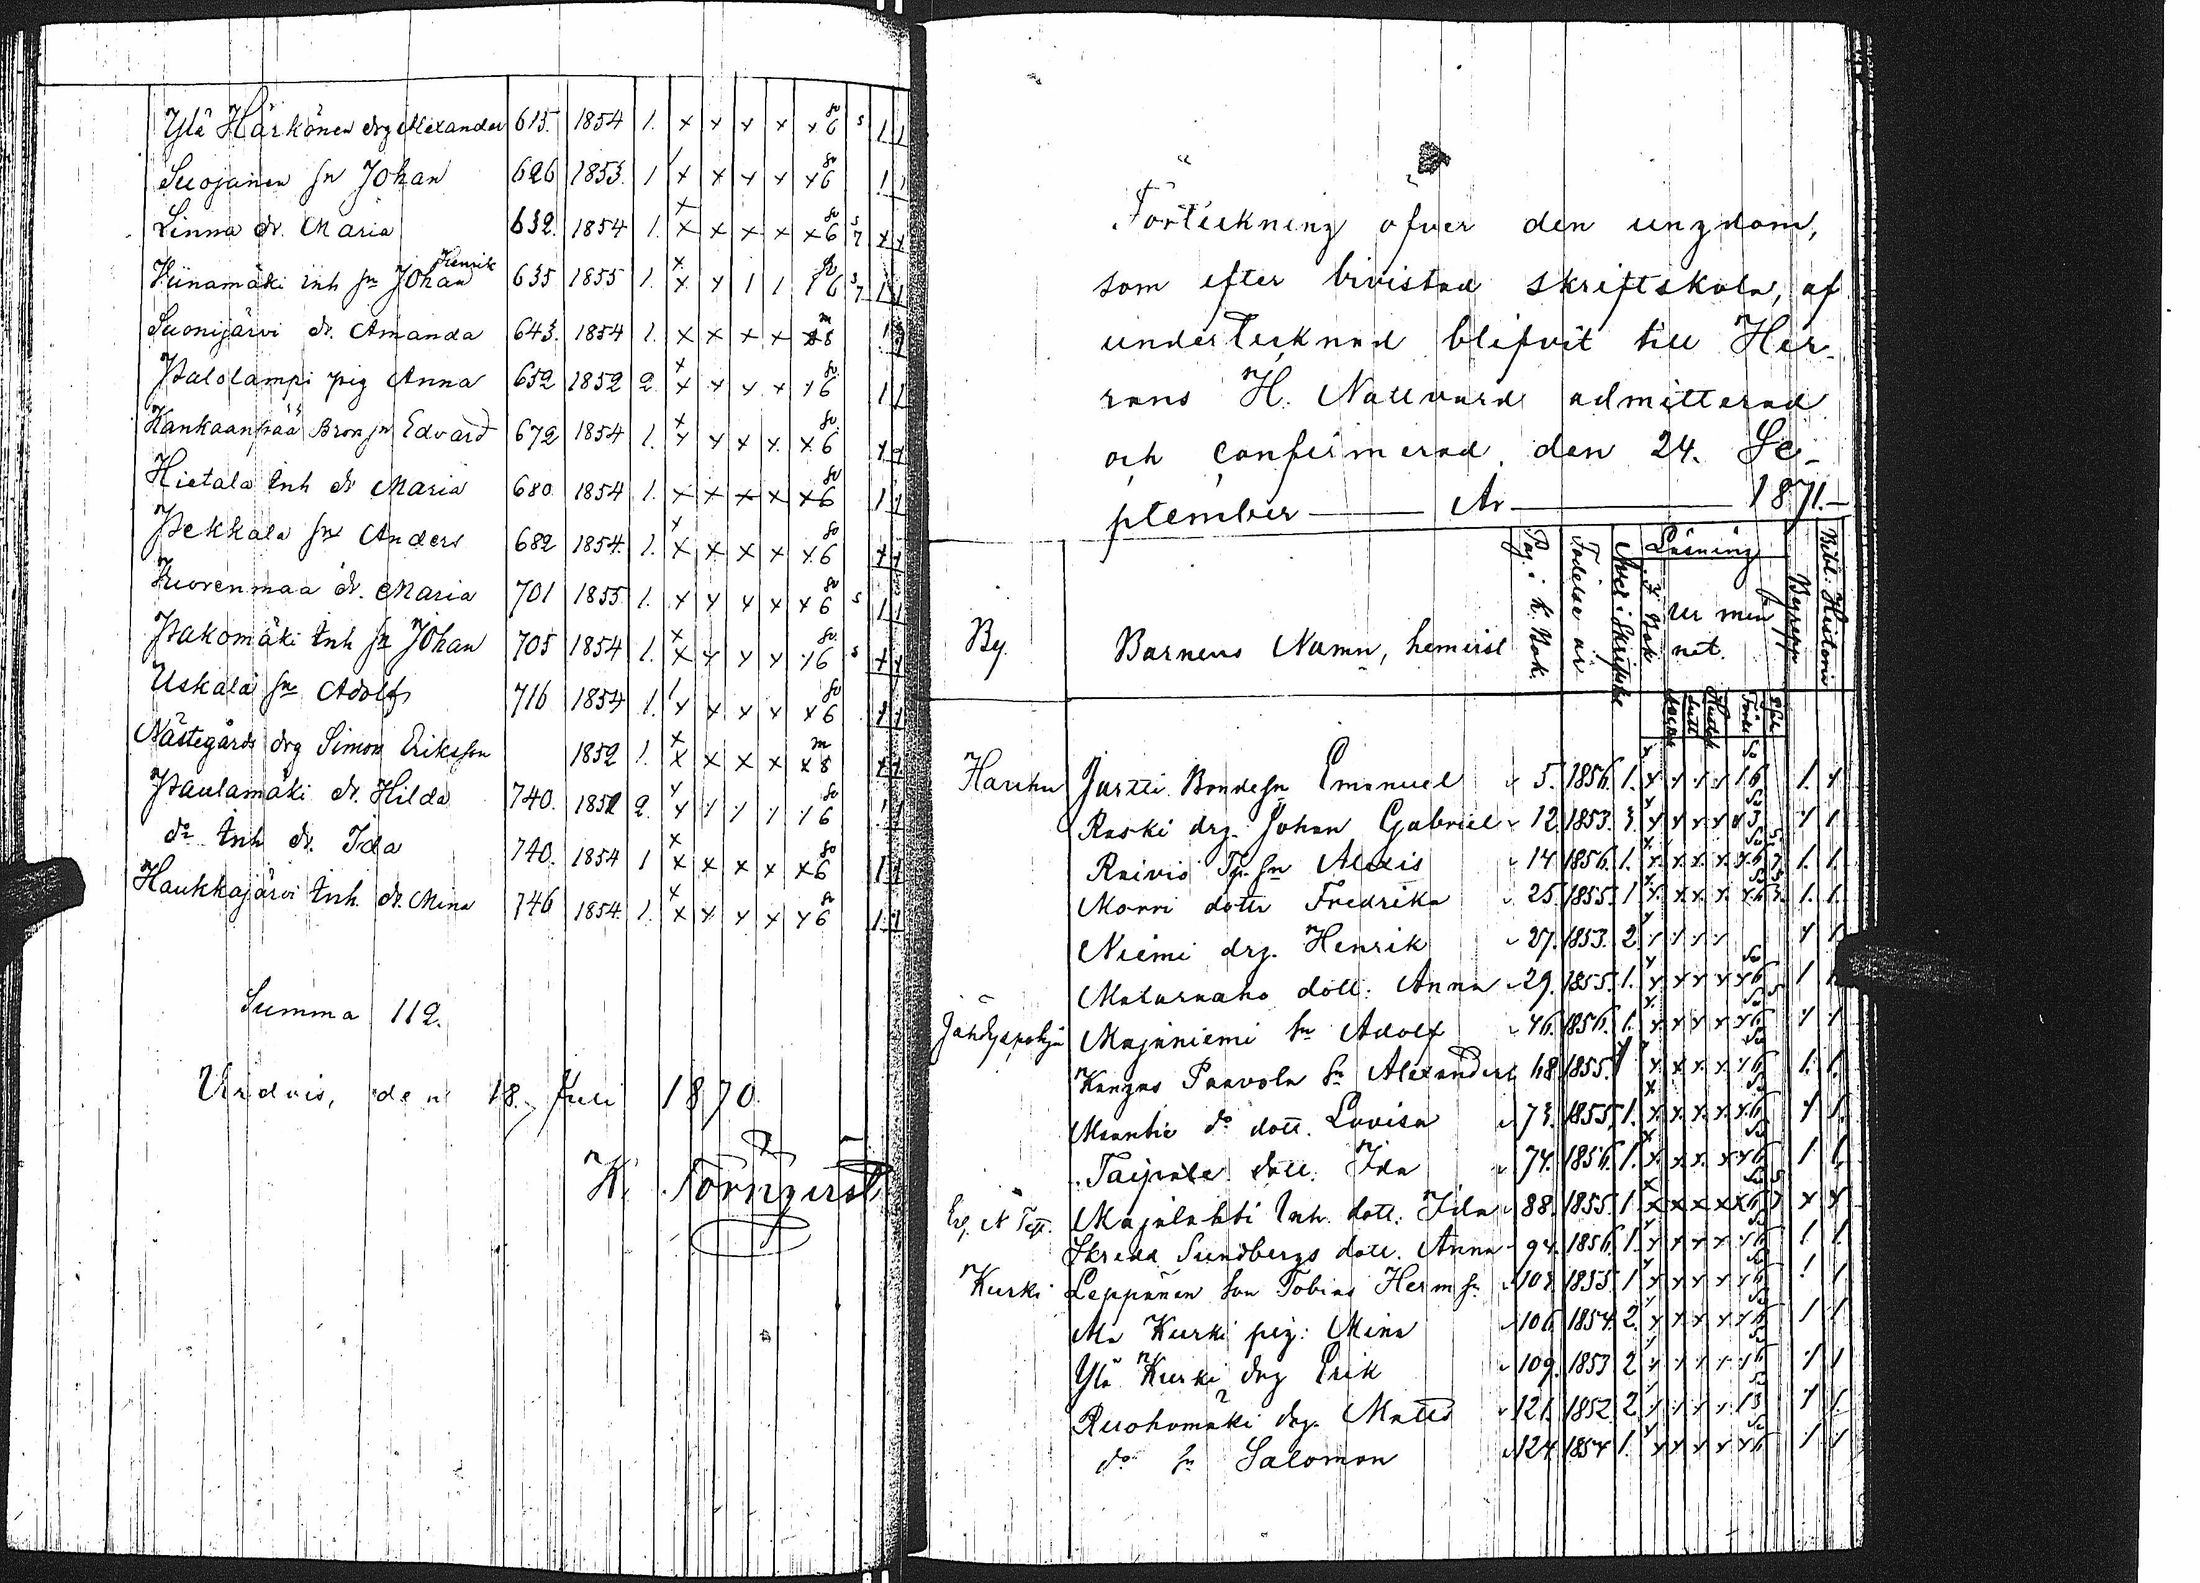 Ylä Härkönen drg Alexander 615. 1854 1. x x x x x 6 so s 1 1
Suojanen sn Johan 626 1853. 1 x x x x x 6 so 1 1
Linna dr. Maria 632. 1854 1. x x x x x 6 so 5 7 x x
Henrik
Kiinamäki inh sn Johan 635 1855 1. x x 1 1 1 6 so 5 7 1 1
Suonijärvi dr. Amanda 643. 1854 1. x x x x x 8 m 1 1
Palolampi pig Anna 652 1852 2 x x x x x 6 so 1 1
Kankaanpää Bron sn Edvard 672 1854 1. x x x x x 6 so x x
Hietala Inh dr Maria 680 1854 1. x x x x x 6 so 1 1
Pekkala sn Anders 682 1854. 1. x x x x x 6 so x x
Kuorenmaa dr. Maria 701 1855. 1. x x x x x 6 so s 1 1
Pakomäki Inh sn Johan 705 1854 1. x x x x x 6 so s x x
Uskala sn Adolf 716 1854 1. x x x x x 6 so 1 1
Nästegårds drg Simon Eriksson 1852 1. x x x x x 8 m x x
Paulamäki dr. Hilda 740. 1852 2. x 1 1 1 1 6 so 1 1
do Inh dr. Ida 740. 1854 1 x x x x x 6 so 1 1
Haukkajärvi Inh. dr. Mina 746 1854 1. x x x x x 6 so 1 1
Summa 112.
Urdvis, den 18. Juli 1870.
K. Törnqvist
Förteckning öfver den ungdom,
som efter bivistad skriftskola, af
undertecknad blifvit till Her-
rans H. Nattvard admitterad
och confirmerad den 24. Se-
ptember Ar 1871.
By. Barnens Namn, hemvist Pag. i K. Bok. Födelse år Läsning I Bok Ur min net. Begrepp Bibl. Historia
Harhu Jurtti Bondesn Emanuel 5. 1856. 1. x x x x 1 6 So 1. x
Raski drg. Johan Gabriel 12. 1853. 3. x x x x x 3 So 1 1.
Raivio Tp. sn Alexis 14 1856. 1. x x x x x 6 So 5 7 1. 1.
Monni dotter Fredrika 25. 1855. 1 x x x x x 6 So 1. 1.
Niemi drg. Henrik 27. 1853. 2 1 1 1 1 1 1
Maturnaho dott. Anna 29. 1855. 1. x x x x x 6 So 1 1.
Jandyspohja Majaniemi sn Adolf 46. 1856. 1. x x x x x 6 So 5 1 1
Kangas Paavola sn Alexander 48 1855. 1 x x x x x 6 So 1. 1.
Maantie do dott. Lovisa 73. 1855. 1. x x x x x 6 So 1 1.
Taipale dott. Ida 74. 1856. 1. x x x x x 6 So 1 1.
Majalahti Inh. dott. Ida 88. 1855. 1. x x x x x 6 So 5 7 x x
Skredd. Sundbergs dott. Anna 94. 1856. 1. x x x x x 6 So 1. 1
Kurki Leppänen son Tobias Hermsn 103. 1855. 1 x x x x x 6 So 1 1
Ala Kurki pig: Mina 106. 1854. 2. x x x x x 6 So 1 1
Ylä Kurki drg Erik 109. 1853 2 1 1 1 1 1 6 So 1 1
Ruohomäki drg. Matts 121. 1852. 2 1 1 1 1 1 3 So 1 1.
do sn Salomon 124. 1854 1. x x x x x 6 So 1 1